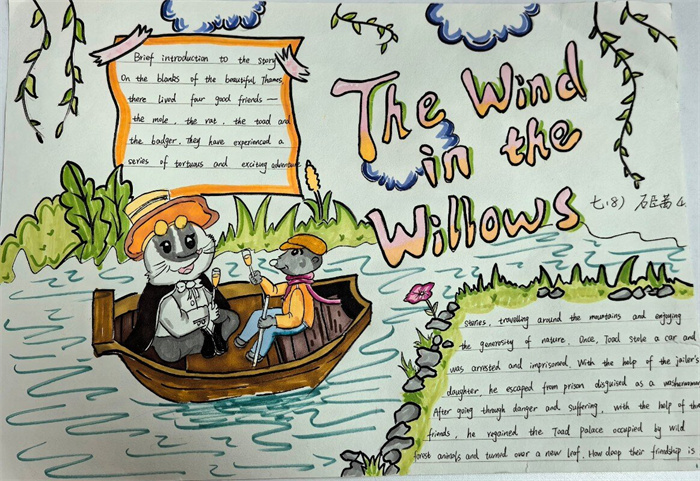 Brief introduction to the story
On the blanks of the beautiful Thames,
there lived four good friends —
the mole, the rat, the toad and
the badger. They have experienced a
series of tortuous and exciting adventure
The Wind
in the
Willows
七.(8)
stories, travelling around the mountains and enjoying
the generosity of nature. Once, Toad stole a car and
was arrested and imprisoned. With the help of the jailer's
daughter, he escaped from prison disguised as a washerwoman
After going through danger and suffering, with the help of the
friends, he regained the Toad Palace occupied by wild
forest animals and turned over a new leaf. How deep their friendship is